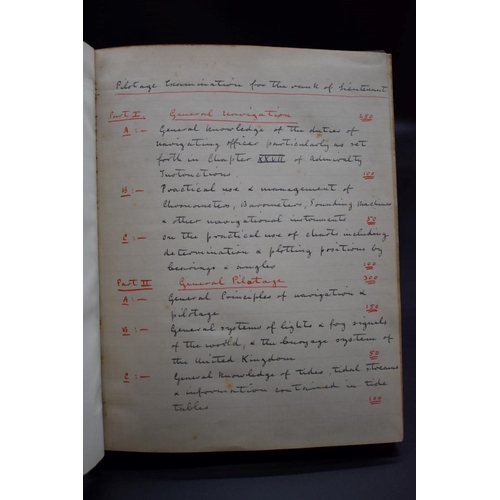 Pilotage Examination for the rank of Lieutenant
Part I. General Navigation 250
A :— General Knowledge of the duties of
navigating officer particularly as set
forth in Chapter XXVII of Admiralty
Instructions. 100
B :— Practical use & management of
Chronometers, Barometers, Sounding Machines
& other navigational instruments 50
C :— On the practical use of charts including
determination & plotting positions by
bearings & angles 100
Part II General Pilotage 300
A :— General Principles of navigation &
pilotage 150
B :— General systems of lights & fog signals
of the world, & the buoyage system of
the United Kingdom 50
C :— General Knowledge of tides, tidal streams
& information contained in tide
tables 100